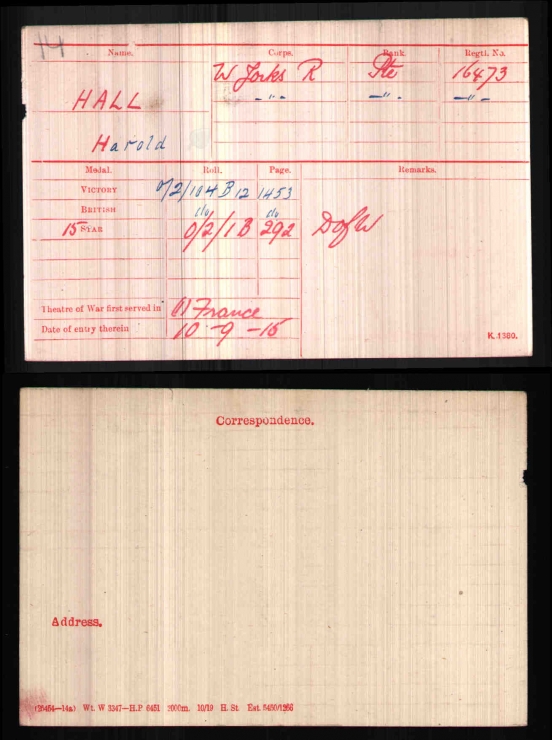 14
Name. Corps. Rank. Regtl. No.
W Yorks R Pte 16473
HALL -"- -"- -"-
Harold
Medal. Roll. Page. Remarks.
VICTORY O/2/104 B 12 1453
BRITISH do do
15 STAR O/2/1 B 292 DofW
Theatre of War first served in (1) France
Date of entry therein 10-9-15
K. 1380.
Correspondence.
Address.
(26454—14a) Wt. W 3347—H.P 6451 2000m. 10/19 H. St Est. 5450/1266